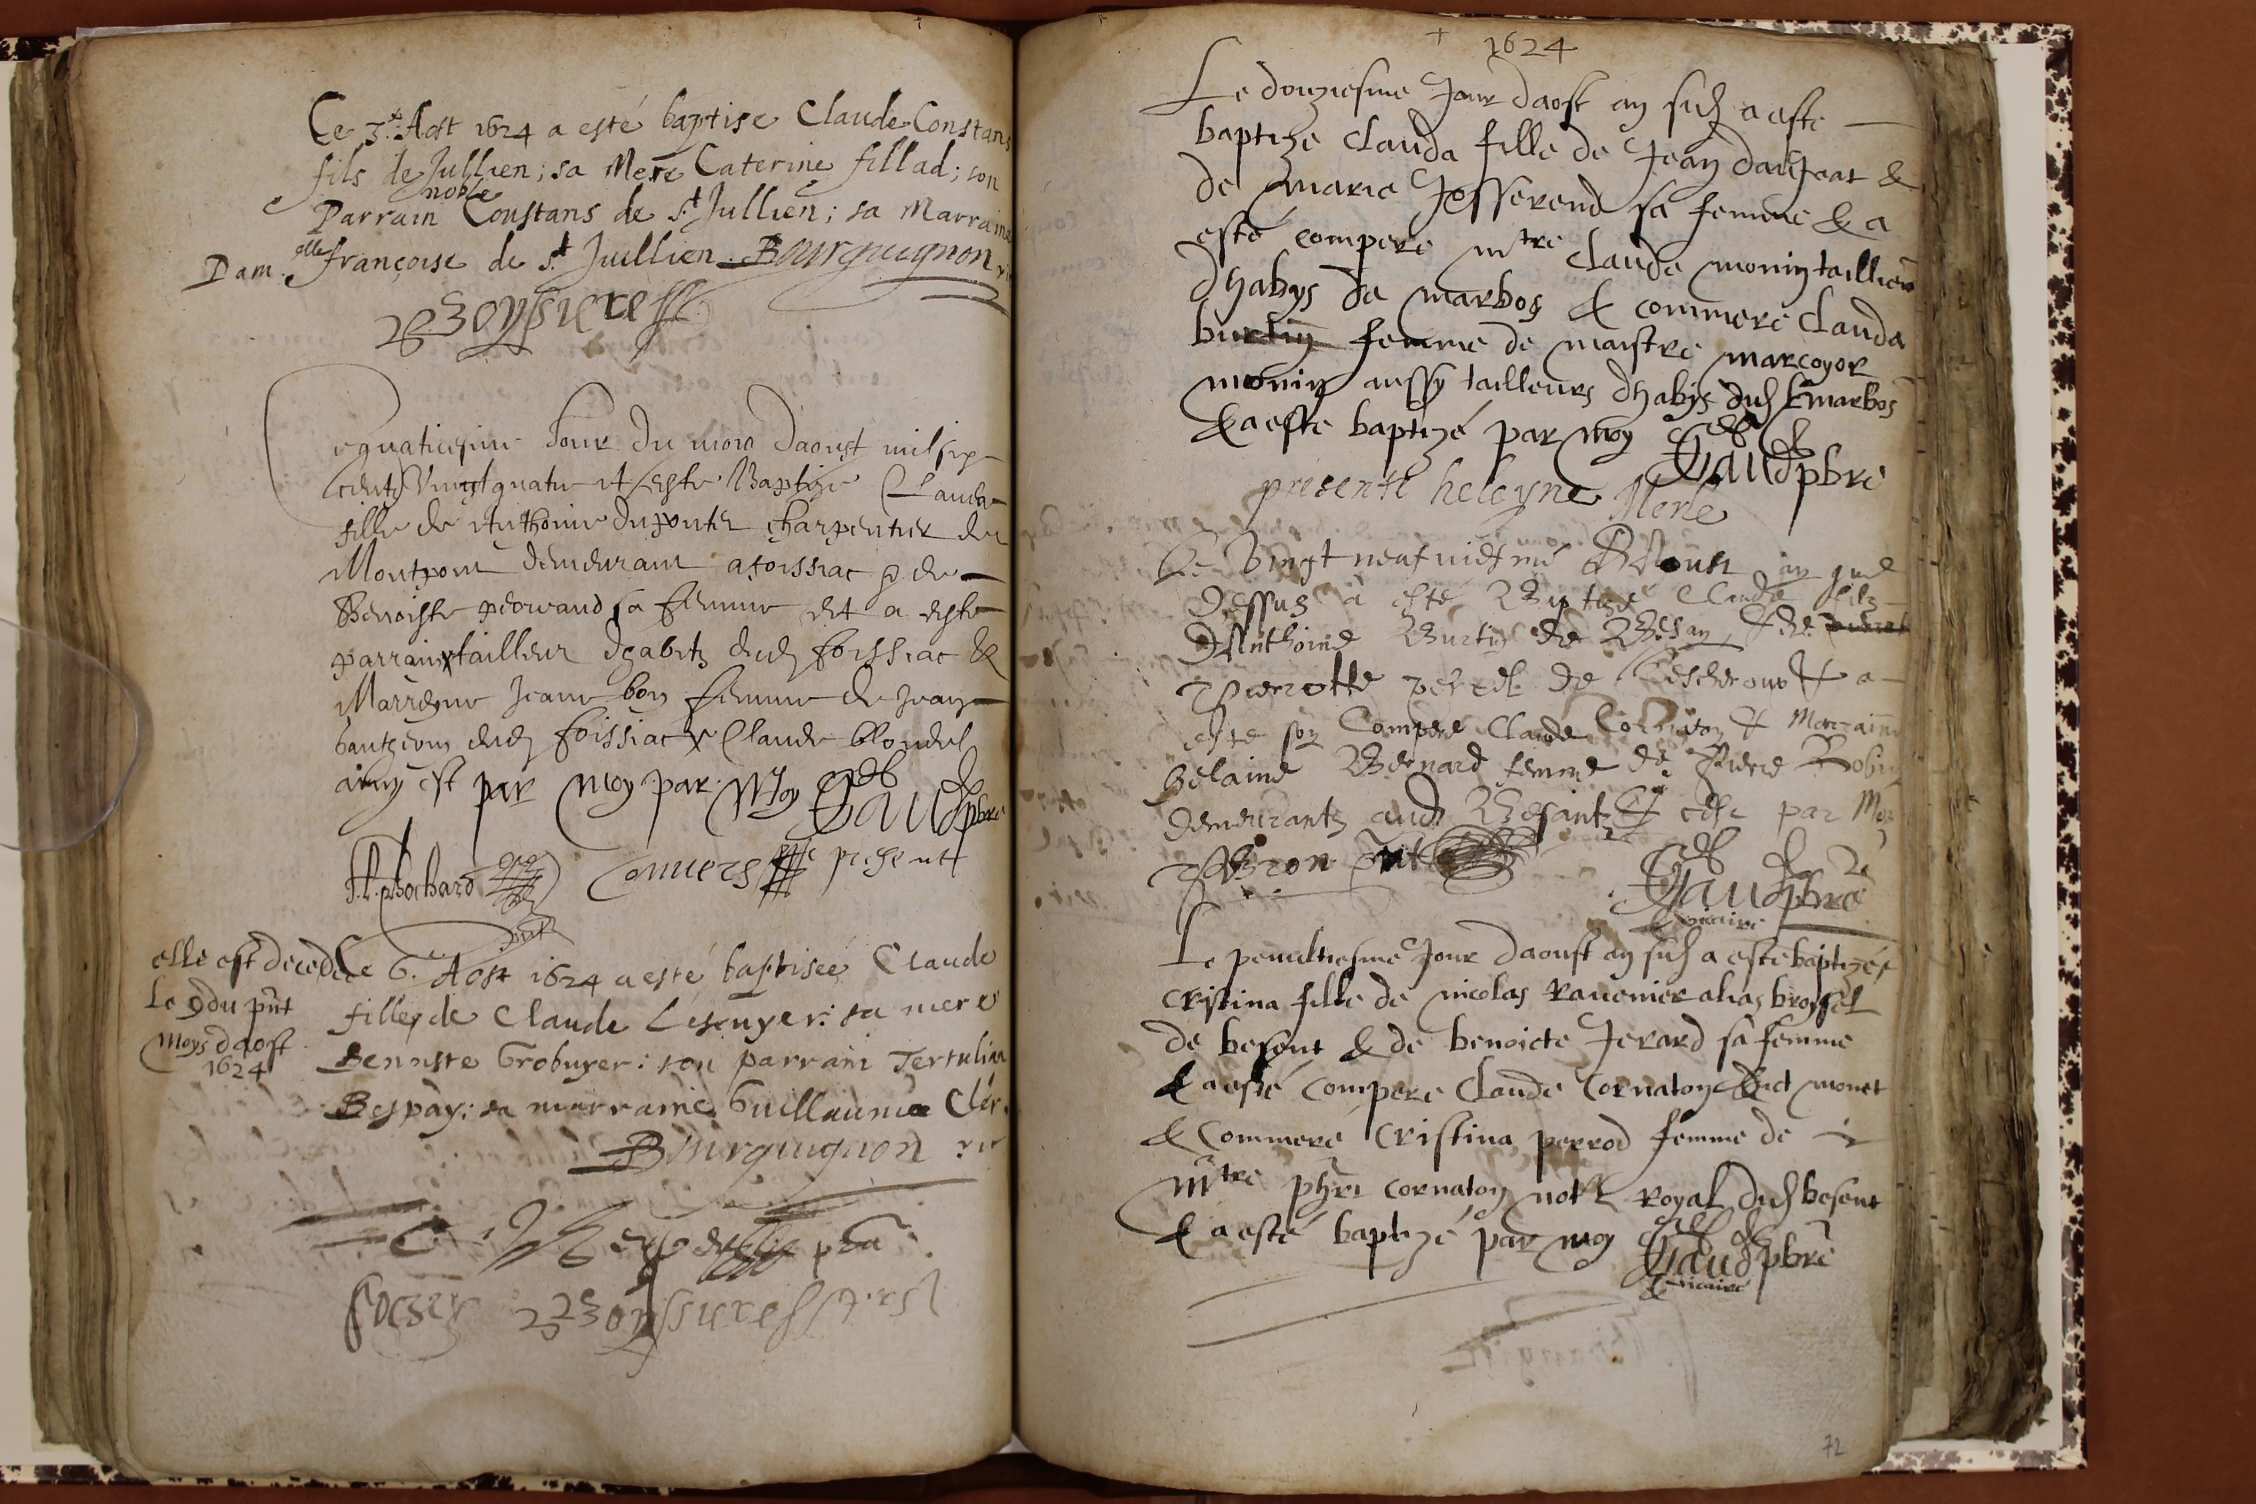 Ce 3.e Aost 1624 a esté baptise Claude Constans
fils de Jullien; sa Mere Caterine fillad; son
noble
Parrain Constans de st. Jullien; sa Marraine
Dam.elle françoise de st. Juillien. Bourguignon
Boyssieress
Ce quatiesme Jour du mois daoust mil six
centz Vingt quatre et este Baptize Clauda
fille de Anthoine duponter charpentier de
Montpont demeurant a foissiac &
Benoiste sa femme et a este
parrain tailleur dhabitz dud foissiac &
Marreyne Jeane bon femme de Jean
dud foissiac Claude blondel
ainsy est par moy par Moy Gaud pbre
Conuers present
elle est decedee
le 9 du pnt
Moys daost
1624
Ce 6.e Aost 1624 a esté baptisée Claude
fille de Claude Lescuyer: sa mere
Benoiste Grobuyer: son parrain Tertulian
Bespay: sa marraine Guillauma Cler.
Bourguignon
Boyssieress
1624
Le douziesme Jour daost an sud a este
baptize clauda fille de Jean daujeat &
de marie Josserend sa femme & a
esté compere mtre claude monin taillieur
dhabys de marbos & commere clauda
burtin femme de maistre marcoyor
monin aussy tailleurs dhabys dud marbos
& a este baptizé par moy Gaud pbre
presente heleyne Merle
Ce Vingt neufuiesme Aoust an que
dessus a esté Baptizé Claude filz
dAnthoine Burtin de Besan & de
Pierrotte & a
este son Compere Claude Cornaton & Marraine
helaine Bernard femme de Pierre Robin
demeurantz aud Besant & este par Moy
Gaud pbre
& vicaire
Le penultiesme Jour daoust an sud a este baptizée
cristina fille de nicolas rauenier alias broyssel
de besent & de benoicte Jerard sa femme
& a esté compere claude cornaton dict monet
& commere cristina perrod femme de
mtre phri cornaton notre royal dud besent
& a esté baptizé par moy Gaud pbre
& vicaire
72